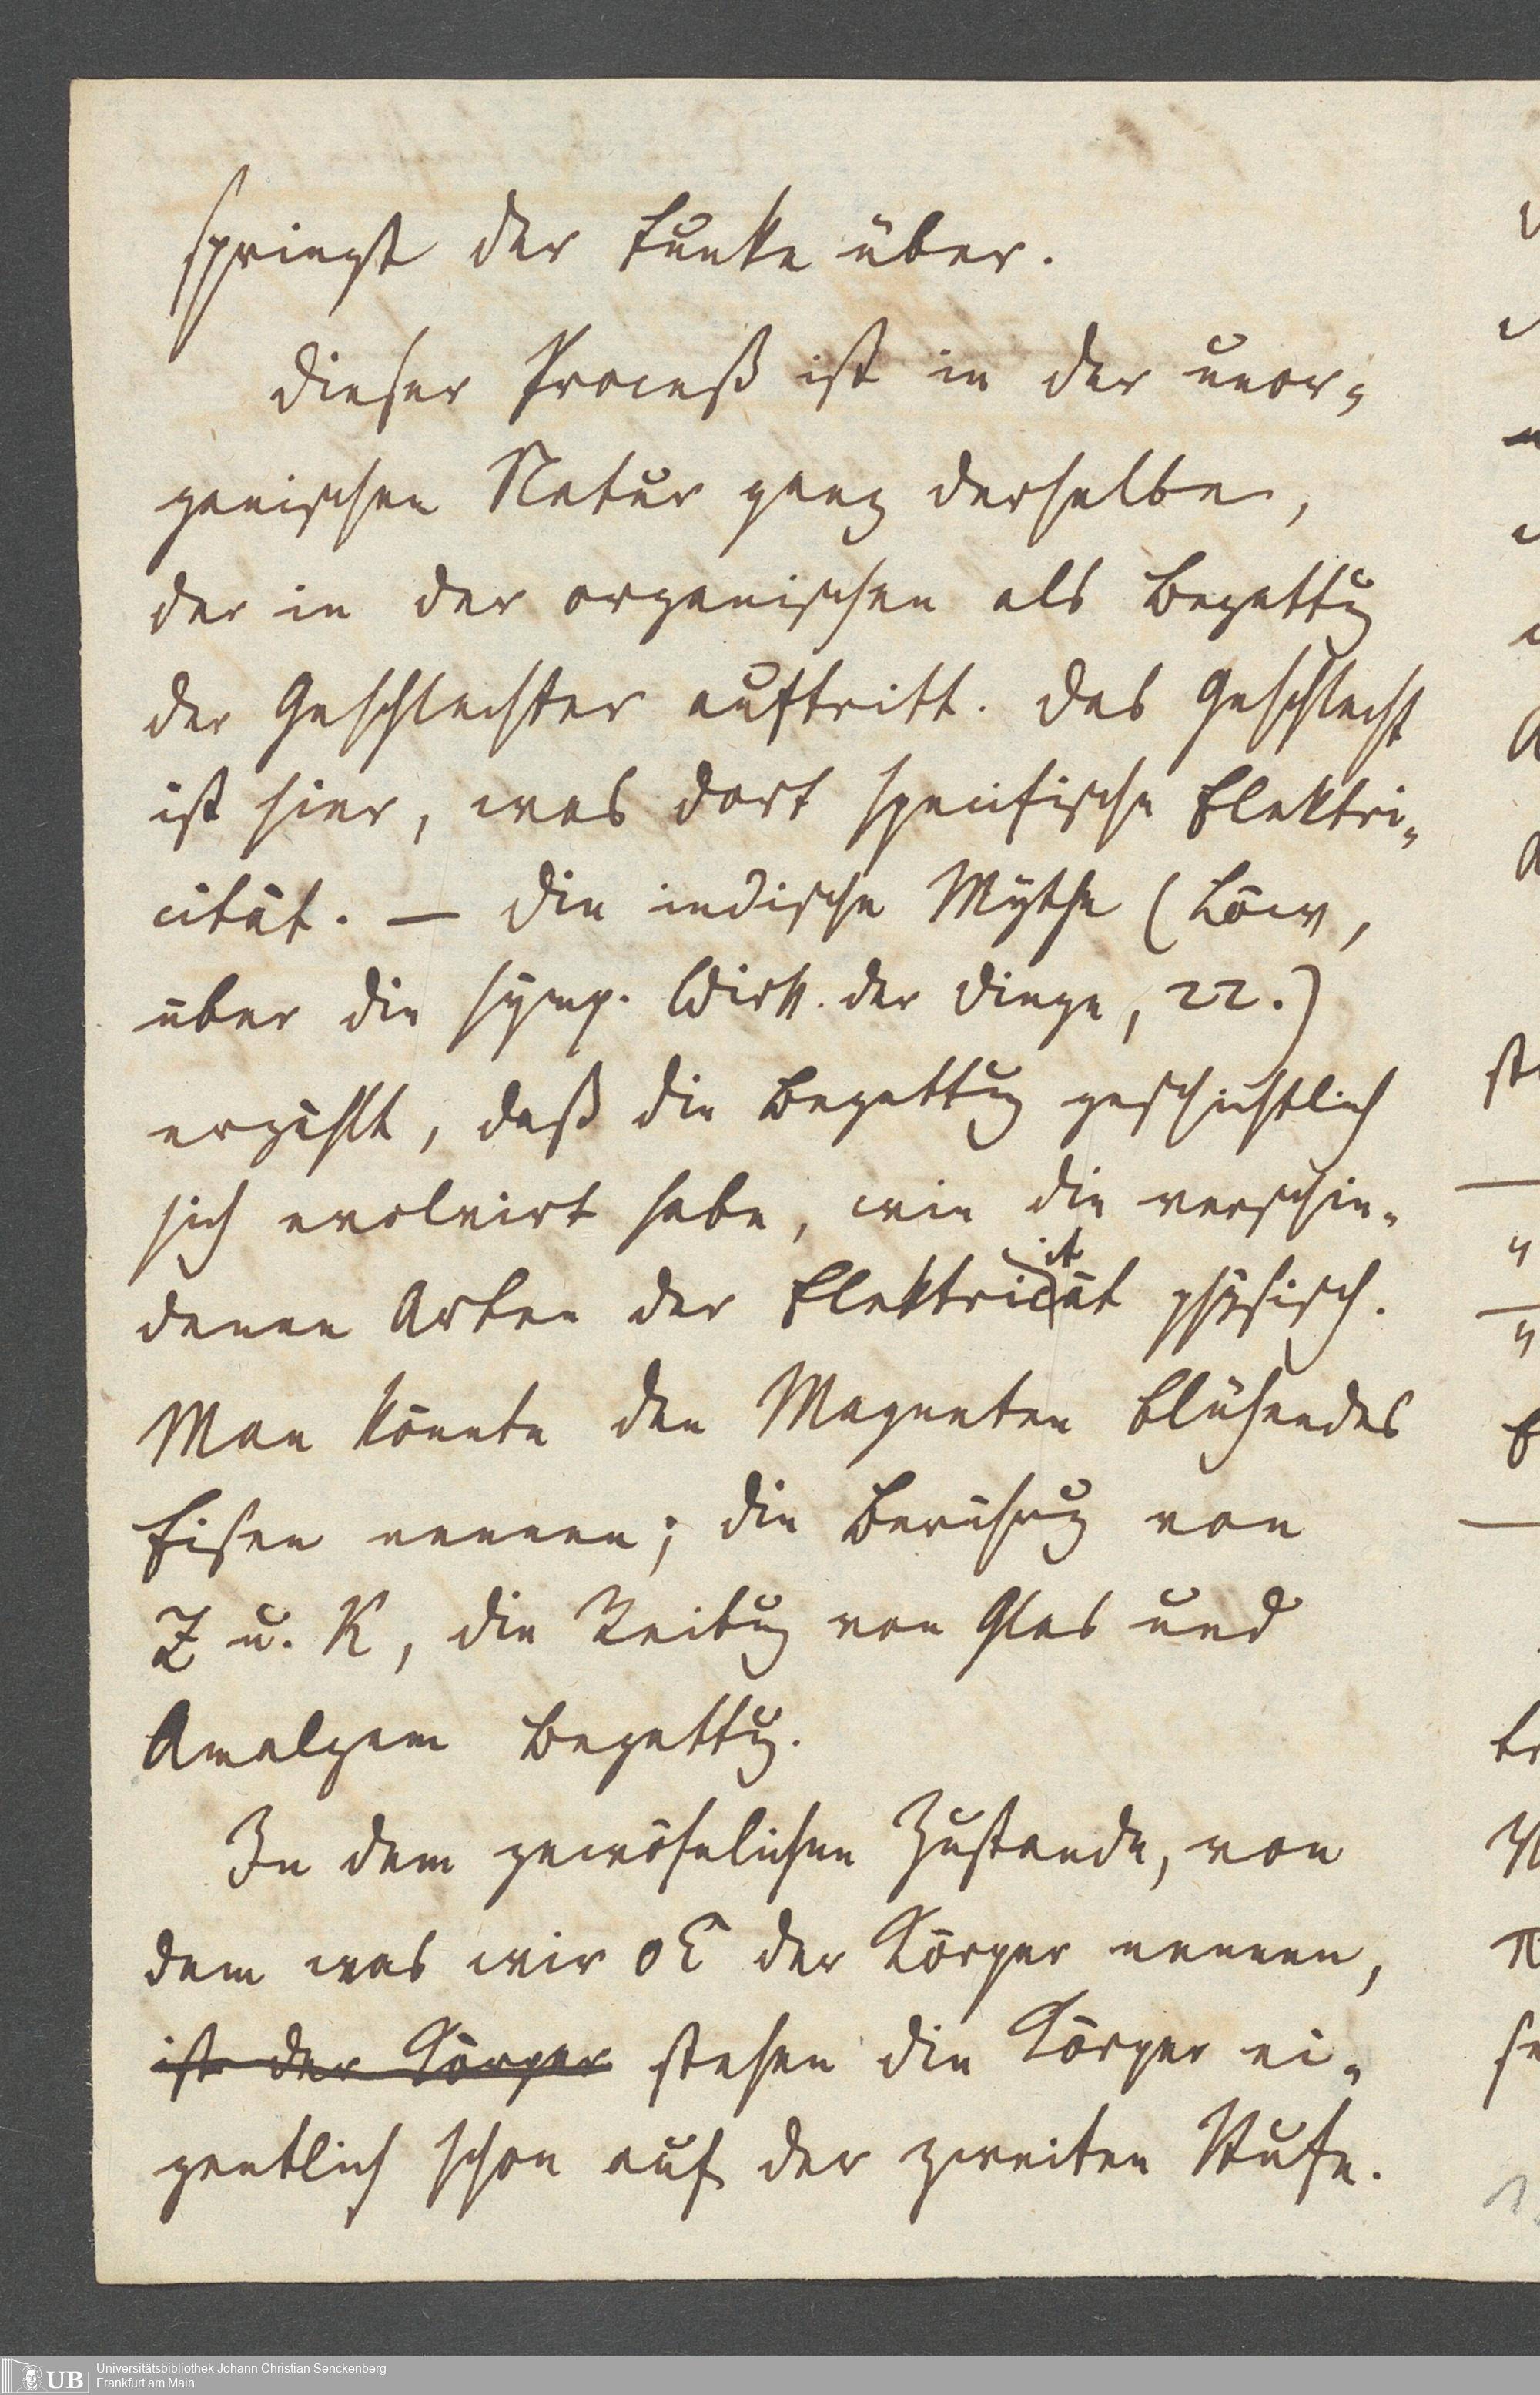 springt der Funke über.
Dieser Proceß ist in der unor-
ganischen Natur ganz derselbe,
der in der organischen als Begattung
der Geschlechter auftritt. Das Geschlecht
ist hier, was dort specifische Elektri-
cität. — Die indische Mythe (Löw,
über die symp. Wirk. der Dinge, 22.)
erzählt, daß die Begattung geschichtlich
sich evolvirt habe, wie die verschie-
denen Arten der Elektricität physisch.
Man könnte den Magneten blühendes
Eisen nennen; die Berührung von
Z u. K, die Reibung von Glas und
Amalgam Begattung.
In dem gewöhnlichen Zustande, von
dem was wir oE der Körper nennen,
ist der Körper stehen die Körper ei-
gentlich schon auf der zweiten Stufe.
UB
Universitätsbibliothek Johann Christian Senckenberg
Frankfurt am Main